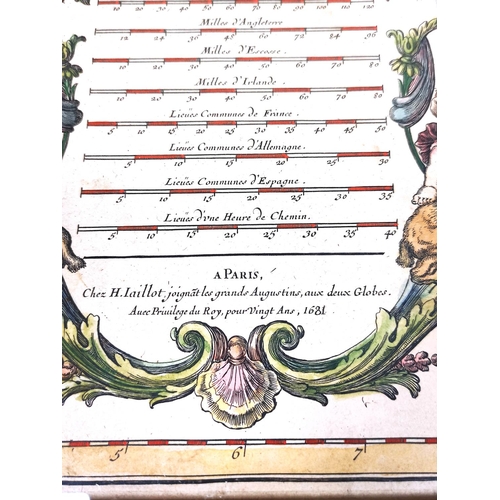 10 20 30 40 50 60 70 80 90 100 110 120
Milles d'Angleterre
12 24 36 48 60 72 84 96
Milles d'Escosse.
10 20 30 40 50 60 70 80
Milles d'Irlande.
10 20 30 40 50 60 70 80
Lieües Communes de France.
5 10 15 20 25 30 35 40 45 50
Lieües Communes d'Allemagne.
5 10 15 20 25 30
Lieües Communes d'Espagne.
5 10 15 20 25 30 35
Lieües d'vne Heure de Chemin.
5 10 15 20 25 30 35 40
A PARIS,
Chez H. Iaillot, joignãt les grands Augustins, aux deux Globes.
Auec Privilege du Roy, pour Vingt Ans, 1681
5 6 7